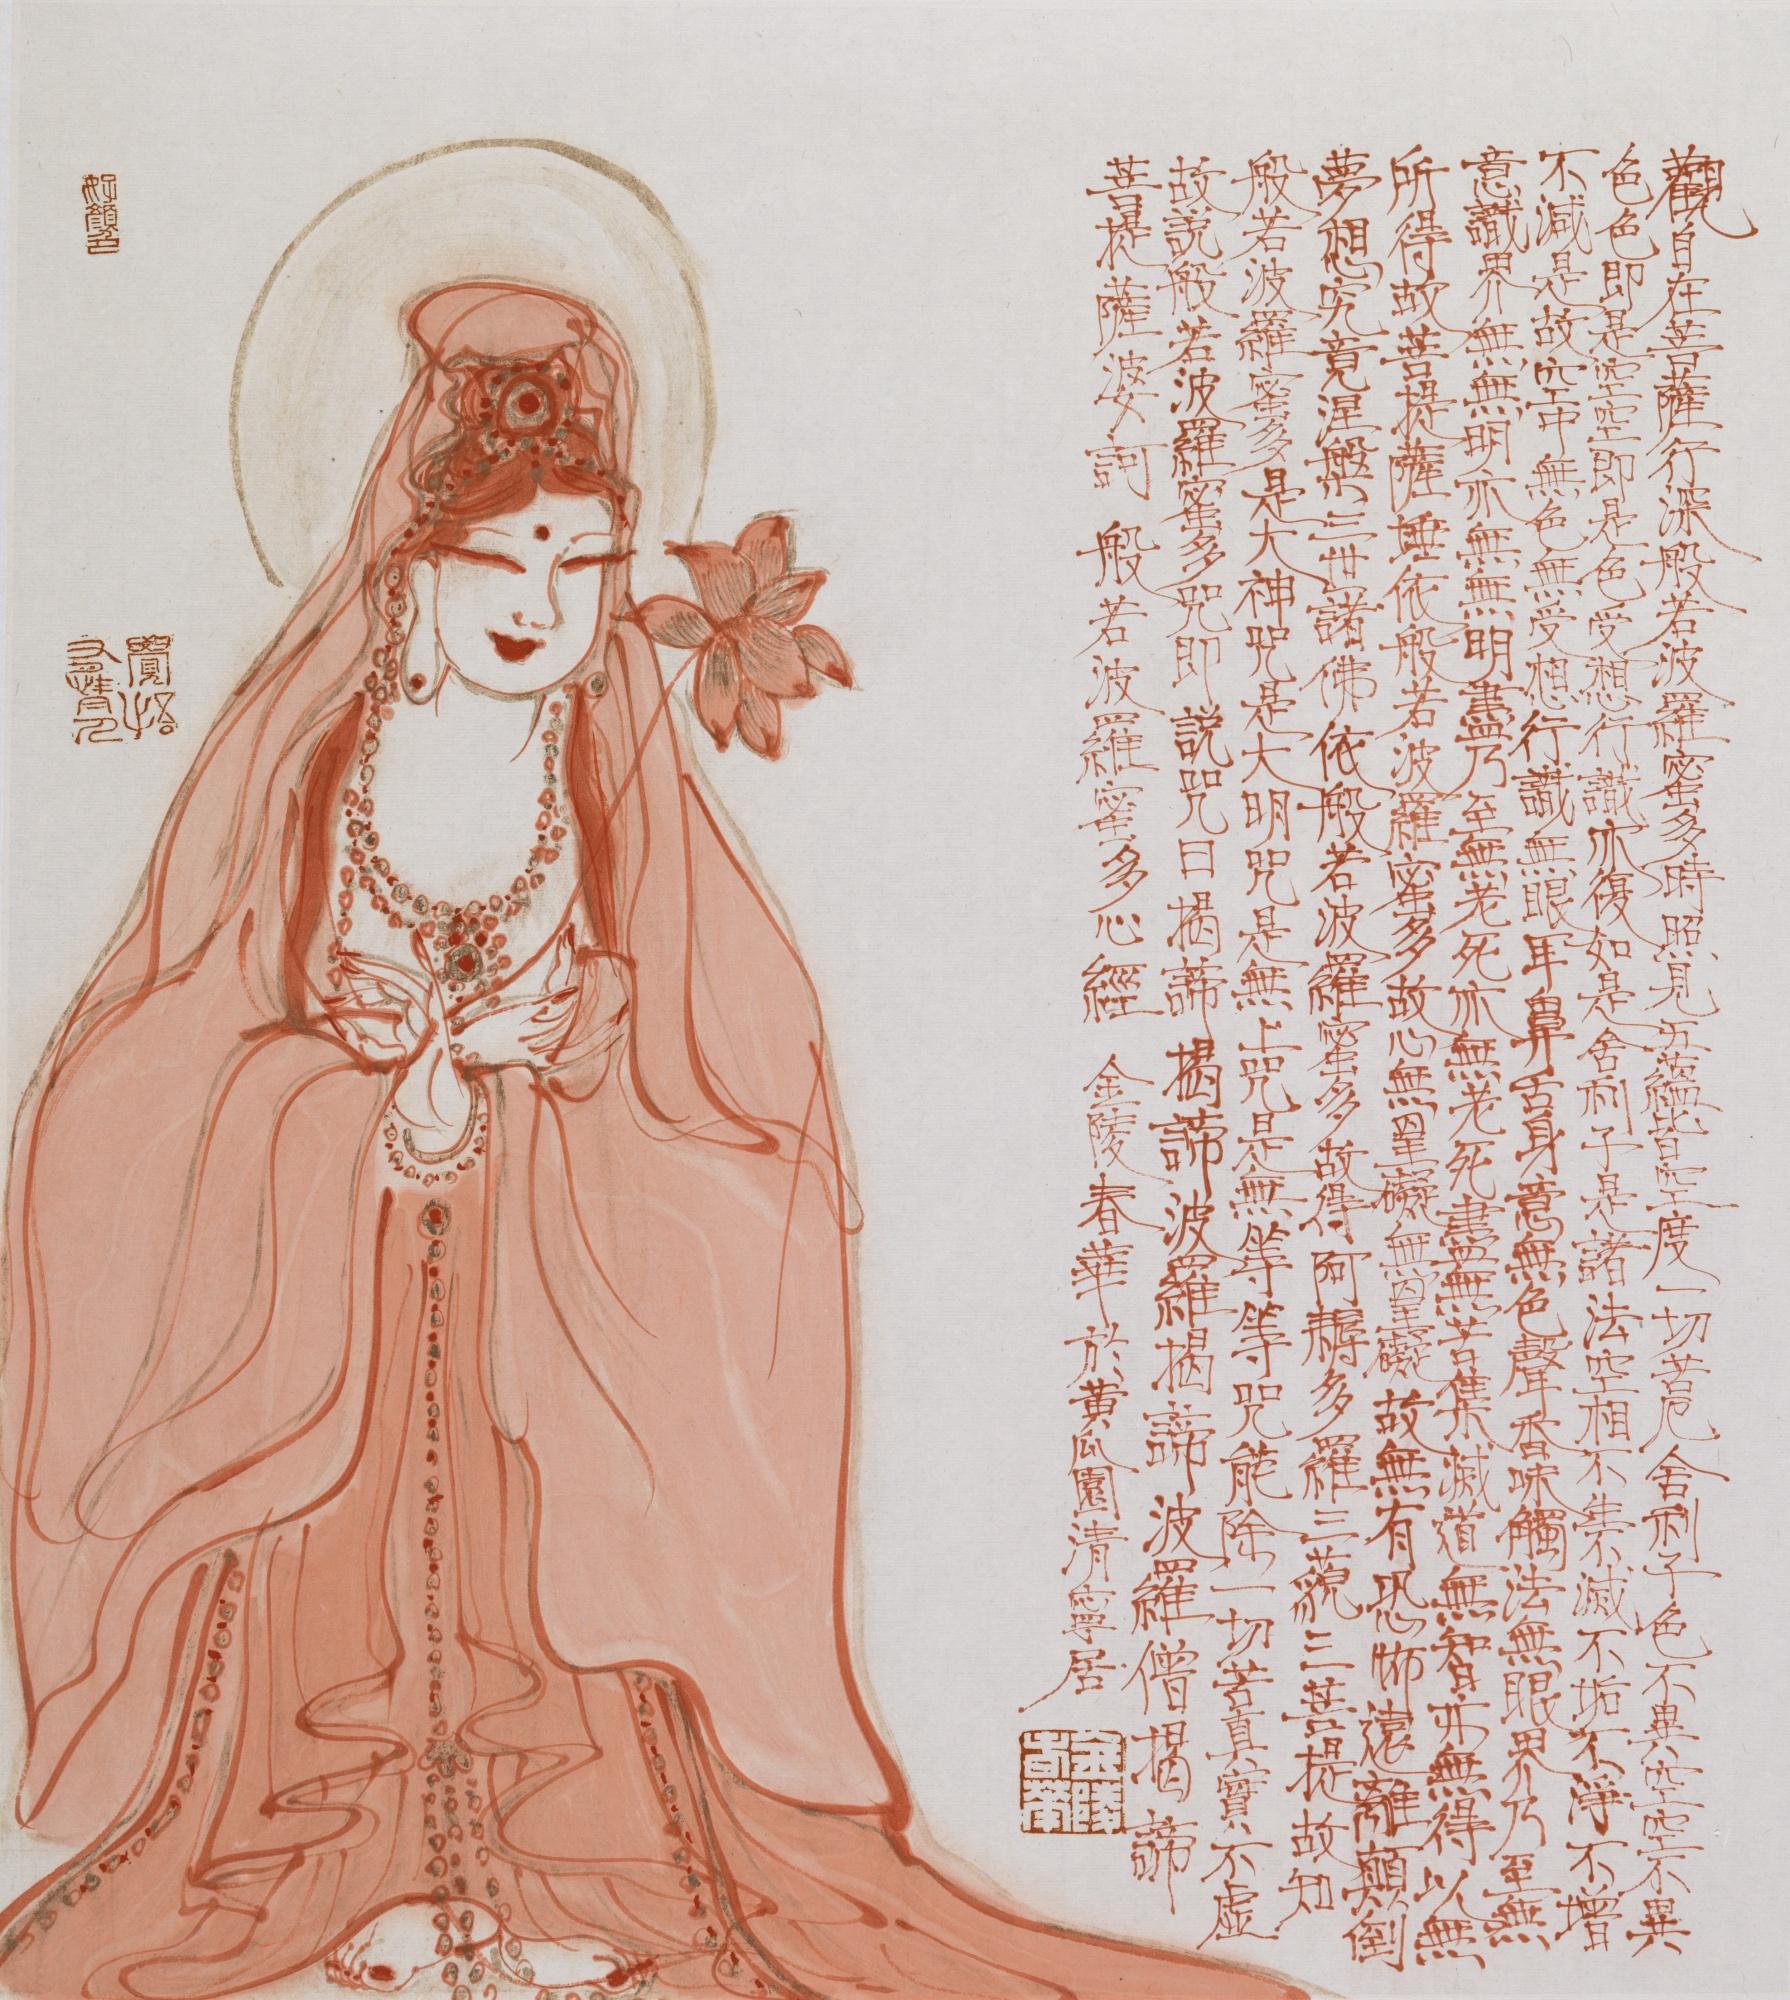 觀自在菩薩行深般若波羅蜜多時照見五蘊皆空度一切苦厄舍利子色不異空空不異
色色即是空空即是色受想行識亦復如是舍利子是諸法空相不生不滅不垢不淨不增
不減是故空中無色無受想行識無眼耳鼻舌身意無色聲香味觸法無眼界乃至無
意識界無無明亦無無明盡乃至無老死亦無老死盡無苦集滅道無智亦無得以無
所得故菩提薩埵依般若波羅蜜多故心無罣礙無罣礙故無有恐怖遠離顛倒
夢想究竟涅槃三世諸佛依般若波羅蜜多故得阿耨多羅三藐三菩提故知
般若波羅蜜多是大神咒是大明咒是無上咒是無等等咒能除一切苦真實不虛
故說般若波羅蜜多咒即說咒曰揭諦揭諦波羅揭諦波羅僧揭諦
菩提薩婆訶 般若波羅蜜多心經 金陵春華於黃瓜園清寧居
金陵
好顏色